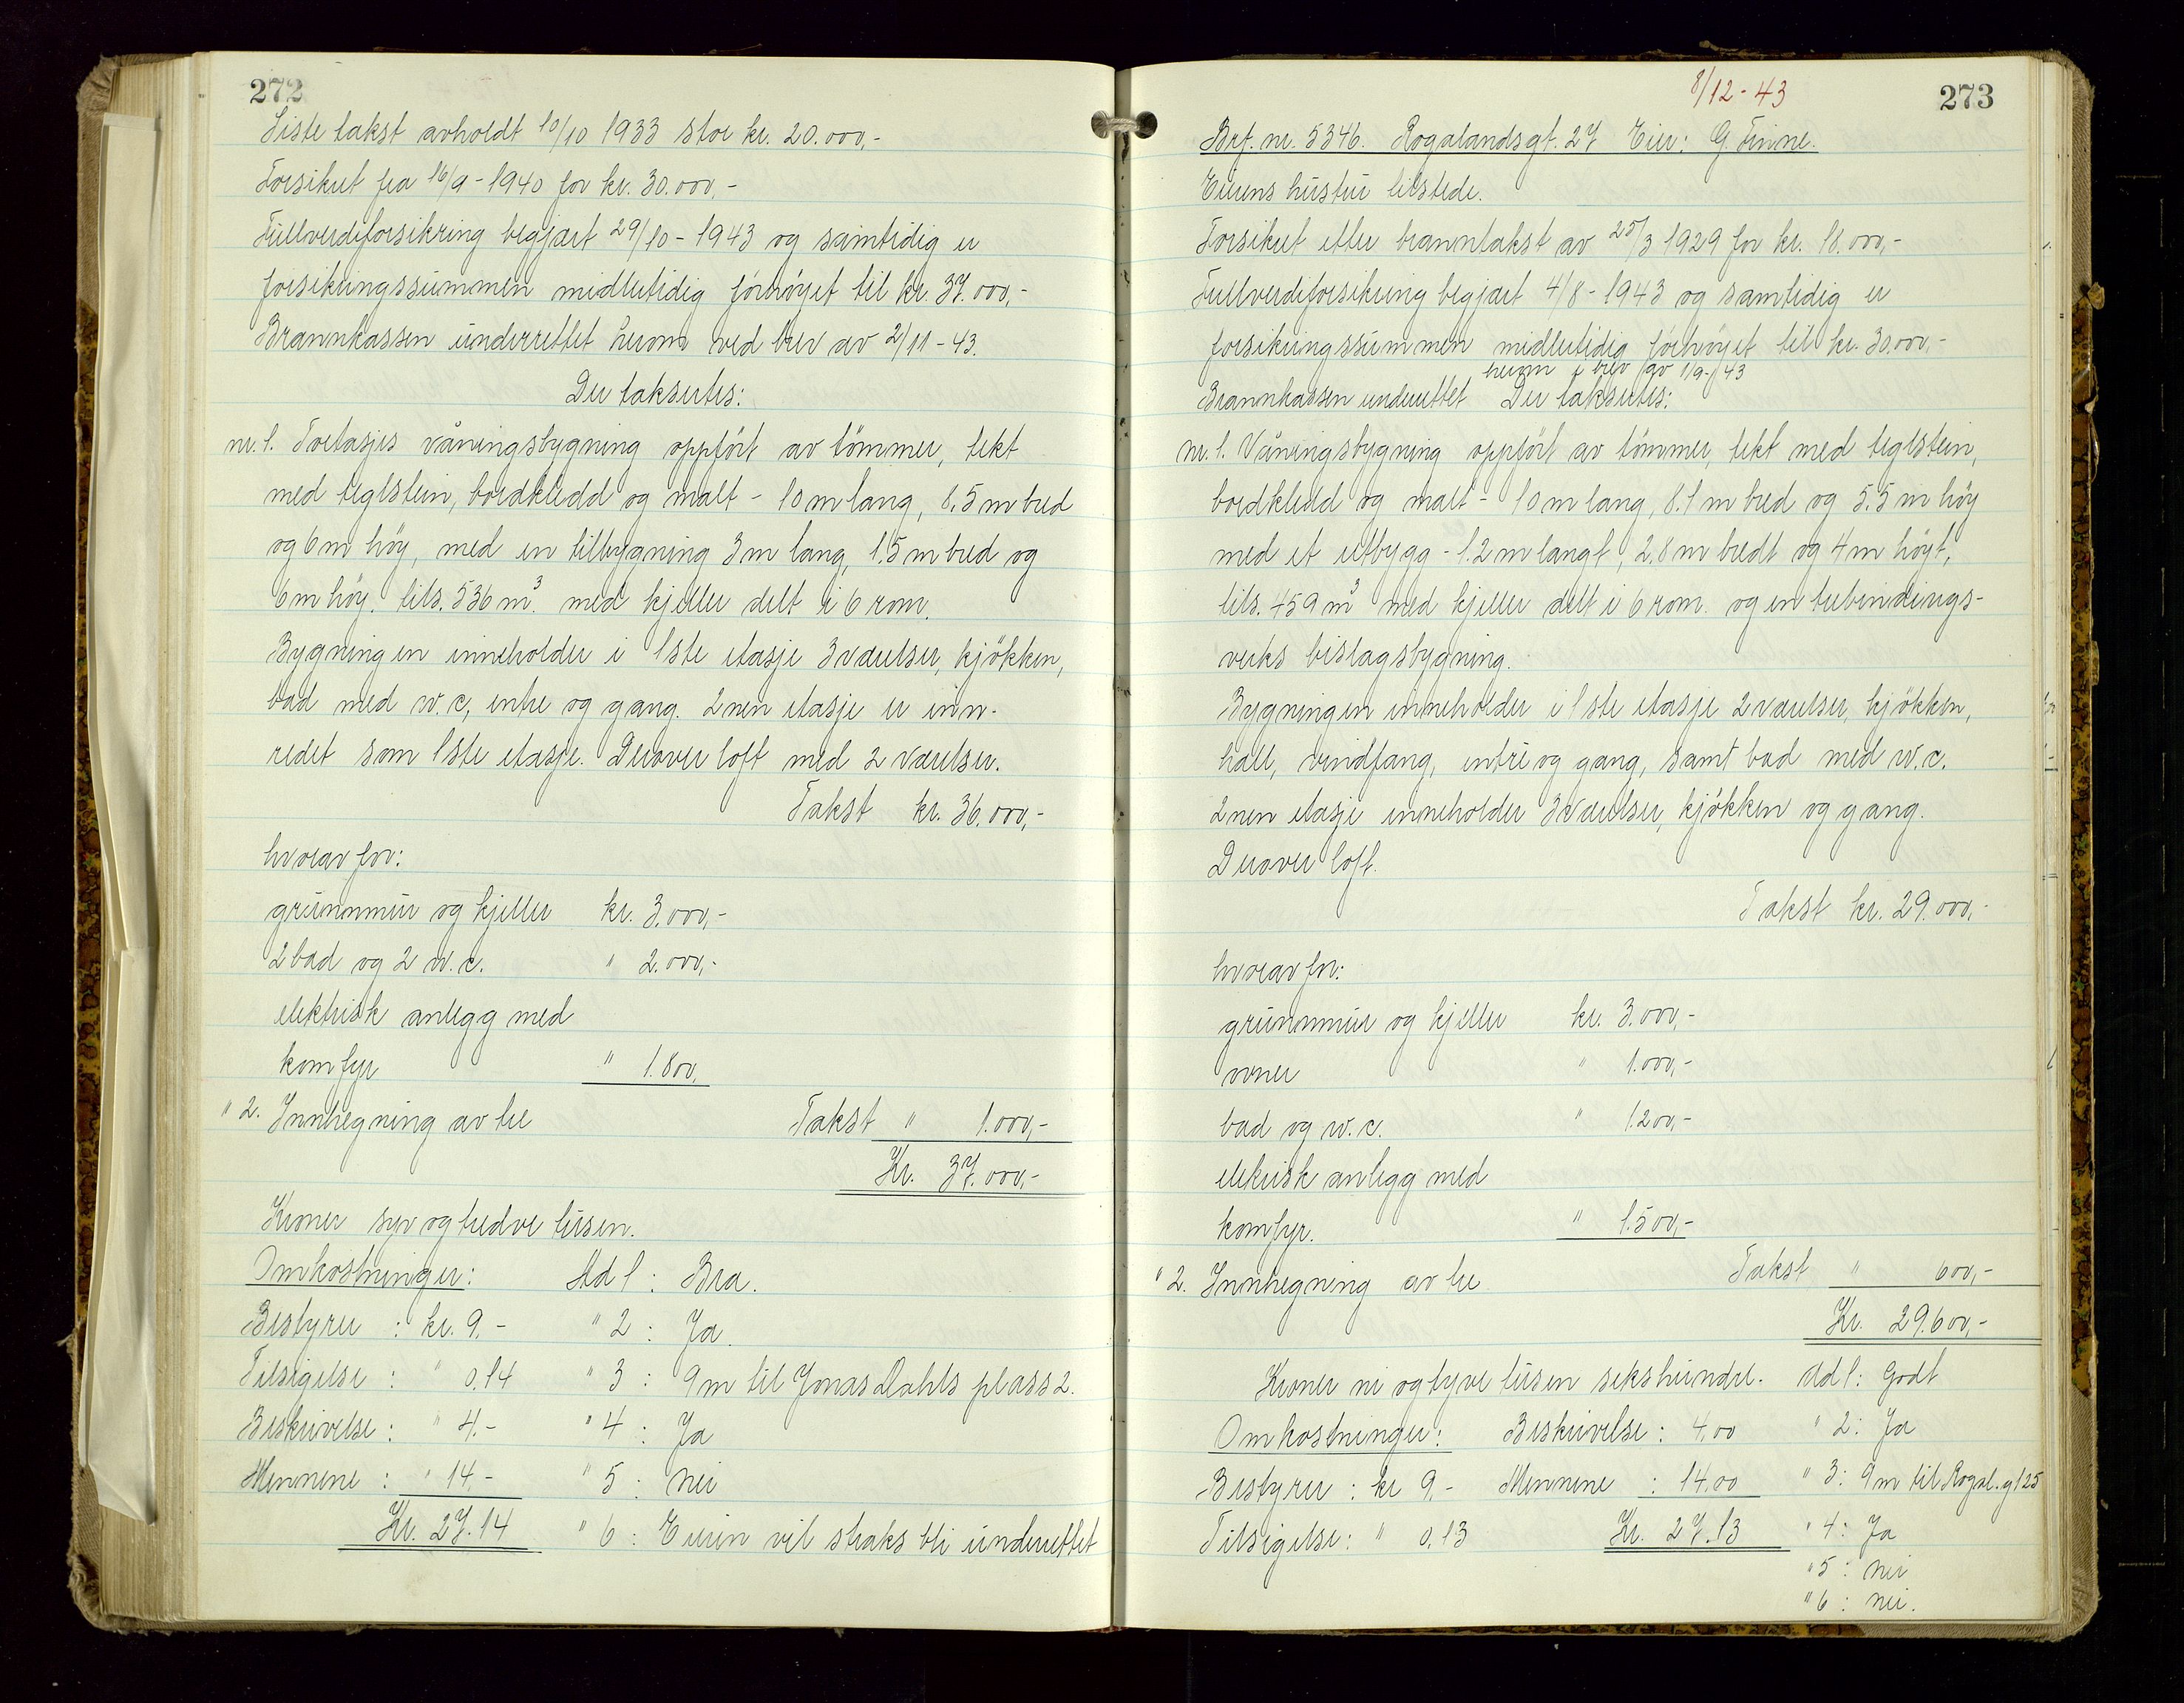 272
Siste takst avholdt 10/10 1933 stor kr. 20.000,-
Forsikret fra 16/9-1940 for kr. 30.000,-
Fullverdiforsikring begjært 29/10-1943 og samtidig er
forsikringssummen midlertidig forhøyet til kr. 37.000,-
Brannkassen underrettet herom ved brev av 2/11-43.
Der takseres:
nr. 1. Toetasjes våningsbygning oppført av tømmer, tekt
med teglstein, bordkledd og malt - 10 m lang, 8,5 m bred
og 6 m høy, med en tilbygning 3 m lang, 1.5 m bred og
6 m høy. tils. 536 m³. med kjeller delt i 6 rom.
Bygningen inneholder i 1ste etasje 3 værelser, kjøkken,
bad med w.c, entre og gang. 2nen etasje er inn-
redet som 1ste etasje. Derover loft med 2 værelser.
Takst kr. 36.000,-
hvorav for:
grunnmur og kjeller kr. 3.000,-
2 bad og 2 w.c. " 2.000,-
elektrisk anlegg med
komfyr " 1.800,
" 2. Innhegning av tre Takst " 1.000,-
Kr. 37.000,-
Kroner syv og tredve tusen.
Omkostninger: Ad 1 : Bra.
Bestyrer : kr. 9,- " 2 : Ja.
Tilsigelse : " 0.14 " 3 : 9 m til Jonas Dahls plass 2.
Beskrivelse : " 4.- " 4 : Ja
Mennene : " 14,- " 5 : nei
Kr. 27.14 " 6 : Eieren vil straks bli underrettet
8/12-43
273
Brf. nr. 5346. Rogalandsgt. 27 Eier: G. Finne.
Eierens hustru tilstede.
Forsikret etter branntakst av 25/3 1929 for kr. 18.000,-
Fullverdiforsikring begjært 4/8-1943 og samtidig er
forsikringssummen midlertidig forhøyet til kr. 30.000,-
herom i brev av 1/9-43
Brannkassen underrettet Der takseres:
nr. 1. Våningsbygning oppført av tømmer, tekt med teglstein,
bordkledd og malt - 10 m lang, 8.1 m bred og 5.5 m høy
med et utbygg - 1.2 m langt, 2.8 m bredt og 4 m høyt,
tils. 459 m³ med kjeller delt i 6 rom. og en trebindings-
verks bislagsbygning.
Bygningen inneholder i 1ste etasje 2 værelser, kjøkken,
hall, vindfang, entre og gang, samt bad med w.c.
2nen etasje inneholder 3 værelser, kjøkken og gang.
Derover loft.
Takst kr. 29.000,-
hvorav for:
grunnmur og kjeller kr. 3.000,-
ovner " 1.000,-
bad og w.c. " 1.200,-
elekrisk anlegg med
komfyr. " 1.500,-
" 2. Innhegning av tre Takst " 600,-
Kr. 29.600,-
Kroner ni og tyve tusen sekshundre. Ad 1: Godt
Omkostninger: Beskrivelse : 4,00 " 2: Ja
Bestyrer : kr 9,- Mennene : 14,00 " 3: 9 m til Rogal.gt 25
Tilsigelse : " 0,13 Kr. 27.13 " 4: Ja
" 5 : nei
" 6 : nei.